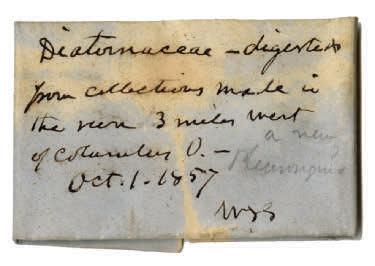 Diatomaceae – digested
from collections made in
the river 3 miles west
of Columbus O. –
a new
Oct. 1. 1857
WSS